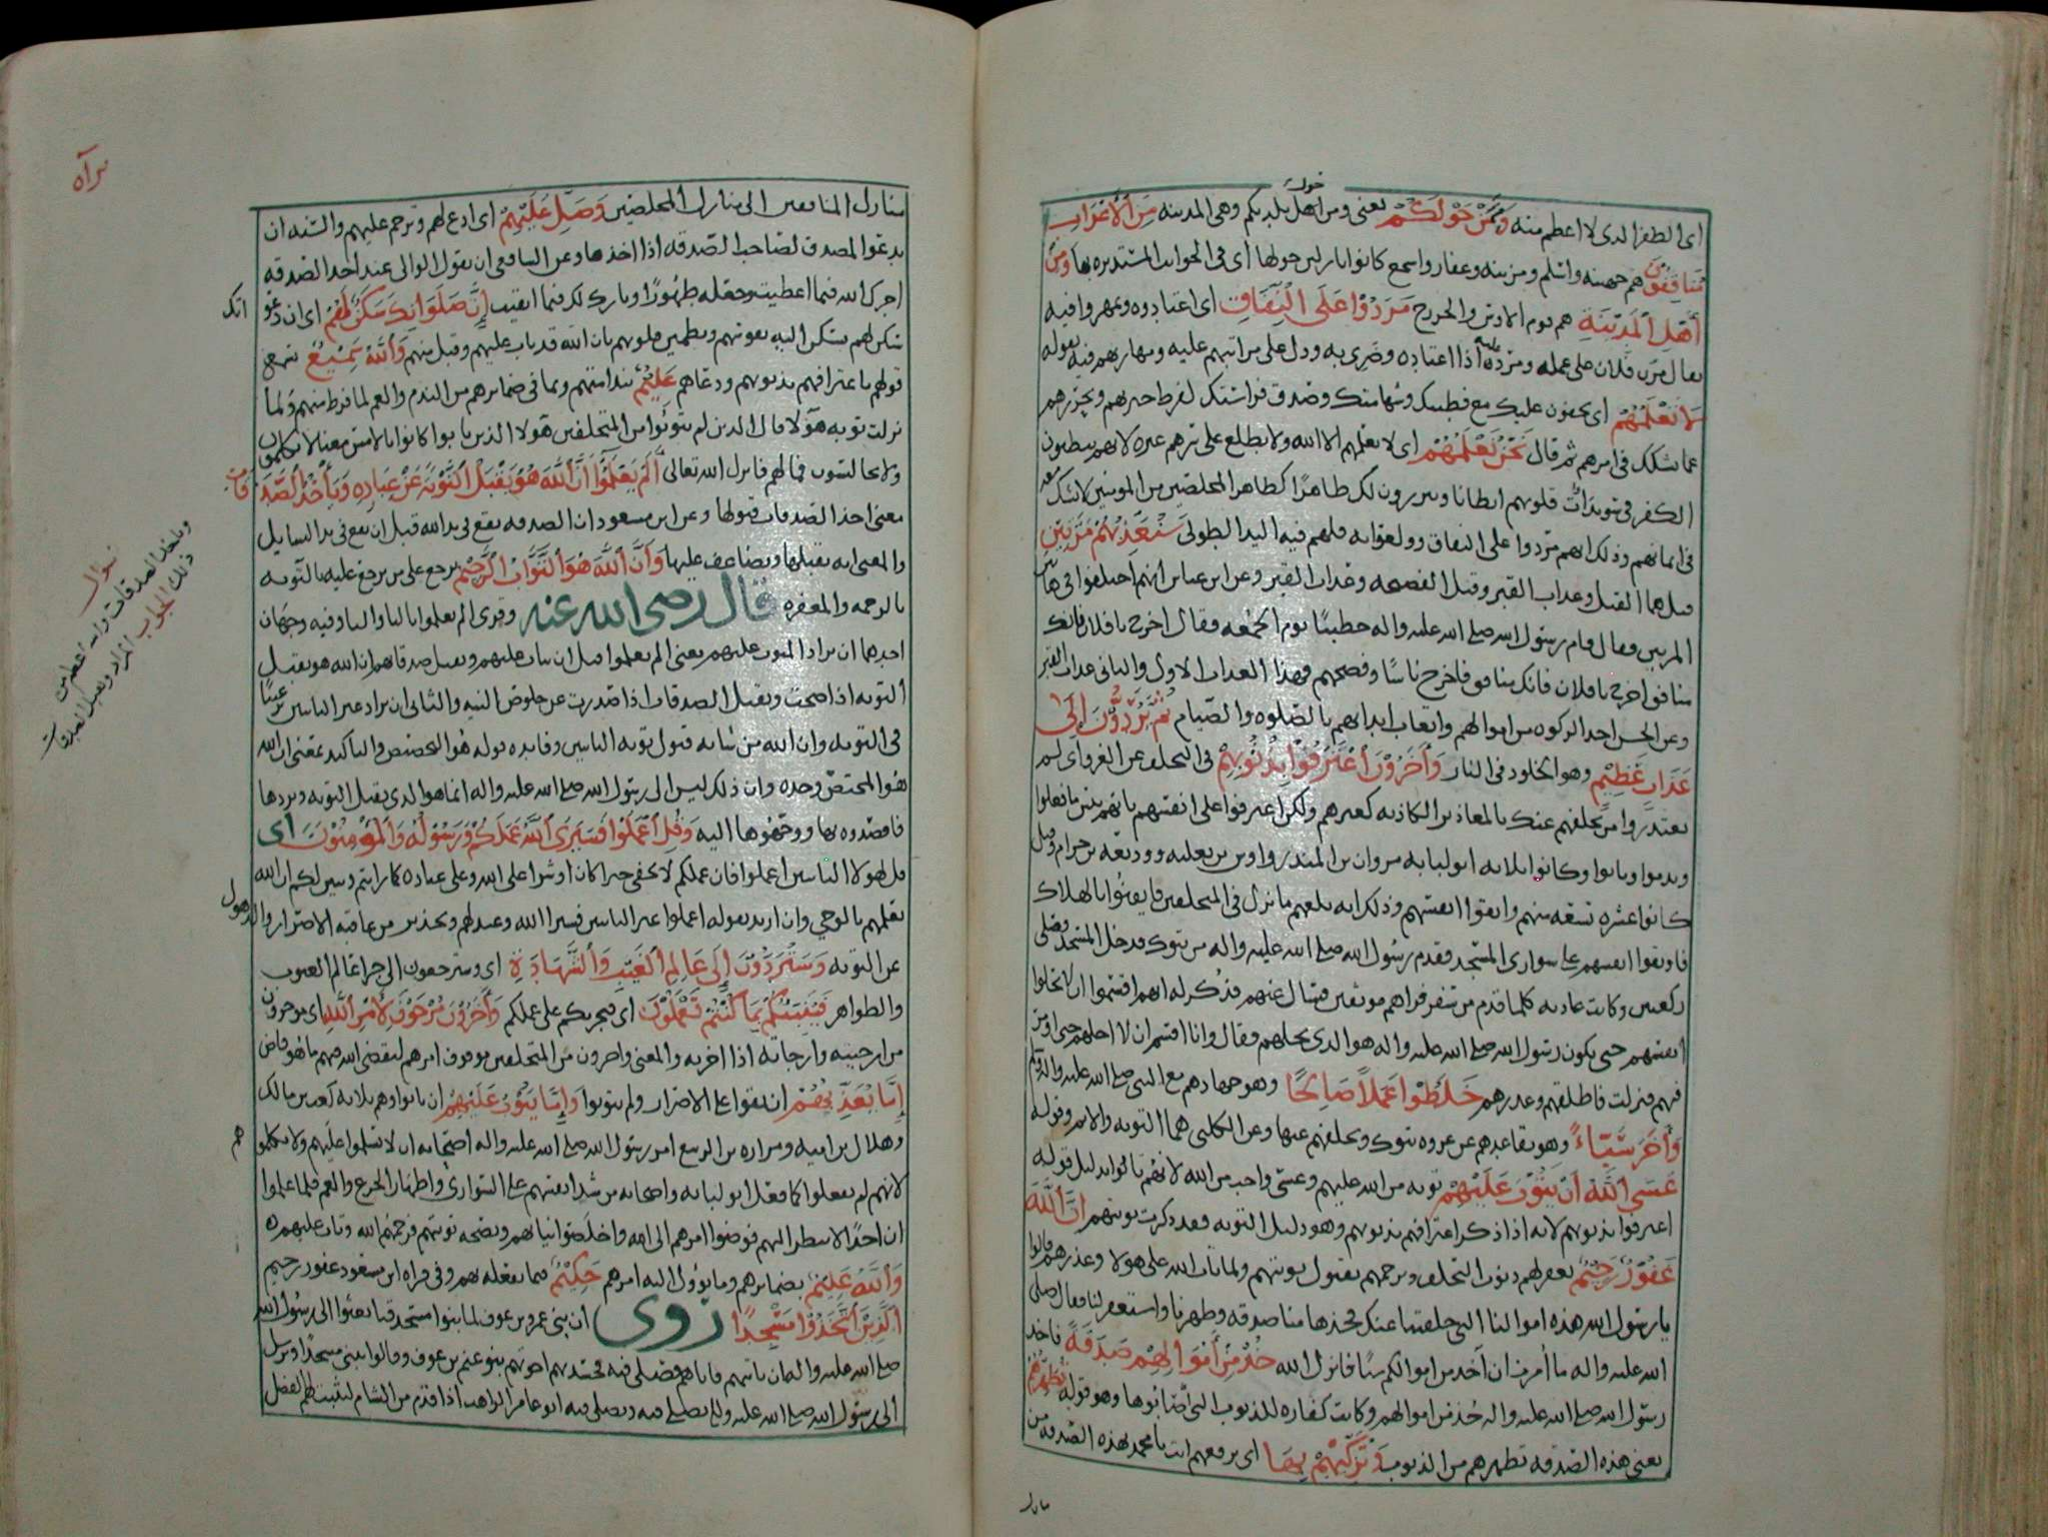 اى الظفر الذى لا اعظم منه وَمِمَّنْ حَوْلَكُمْ يعنى ومن اهل بلدتكم وهى المدينه مِنَ الْأَعْرَابِ
حول
مُنَافِقُونَ هم جهينه واسلم ومزينه وغفار واشجع كانوا نازلين حولها اى فى الجوانب المستديره بها وَمِنْ
أَهْلِ الْمَدِينَةِ هم قوم الاوس والخزرج مَرَدُوا عَلَى النِّفَاقِ اى اعتادوه وتمهروا فيه
يقال مرن فلان على عمله ومرد عليه اذا اعتاده وضرى به ودل على مرانتهم عليه ومهارتهم فيه بقوله
لَا تَعْلَمُهُمْ اى يخفون عليك مع فطنتك وشهامتك وصدق فراستك لفرط تحريهم وتحرزهم
عما يشكك فى امرهم ثم قال نَحْنُ نَعْلَمُهُمْ اى لا يعلمهم الا الله ولا يطلع على سرهم غيره لانهم يبطنون
الكفر فى سويداآت قلوبهم ابطانا ويبرزون لك ظاهرًا كظاهر المخلصين من المومنين لا تشك معه
فى ايمانهم وذلك انهم مردوا على النفاق فلهم فيه اليد الطولى سَنُعَذِّبُهُمْ مَرَّتَيْنِ
قيل هما القتل وعذاب القبر وقيل الفضيحه وعذاب القبر وعن ابن عباس انهم اختلفوا فى هاتين
المرتين فقال قام رسول الله صلى الله عليه واله خطيبًا يوم الجمعه فقال اخرج يا فلان فانك
منافق اخرج يا فلان فانك منافق فاخرج ناسًا وفضحهم فهذا العذاب الاول والثانى عذاب القبر
وعن الحسن اخذ الزكوه من اموالهم وانهاك ابدانهم بالصلوه والصيام ثُمَّ يُرَدُّونَ إِلَى
عَذَابٍ عَظِيمٍ وهو الخلود فى النار وَآخَرُونَ اعْتَرَفُوا بِذُنُوبِهِمْ فى التخلف عن الغزو اى لم
يعتذروا من تخلفهم عنك بالمعاذير الكاذبه كغيرهم ولكن اعترفوا على انفسهم بانهم بئس ما فعلوا
وندموا وتابوا وكانوا ثلاثه ابو لبابه مروان بن المنذر واوس بن ثعلبه ووديعه بن حزام وقيل
كانوا عشره تسعه منهم واثقوا انفسهم وذلك انه بلغهم ما نزل فى المتخلفين فايقنوا بالهلاك
فاوثقوا انفسهم على سوارى المسجد فقدم رسول الله صلى الله عليه واله من تبوك فدخل المسجد فصلى
ركعتين وكانت عادته كلما قدم من سفر فراهم موثقين فسال عنهم فذكر له انهم اقسموا ان لا يحلوا
انفسهم حتى يكون رسول الله صلى الله عليه واله هو الذى يحلهم فقال وانا اقسم ان لا احلهم حتى اومر
فيهم فنزلت فاطلقهم وعذرهم خَلَطُوا عَمَلًا صَالِحًا وهو جهادهم مع النبى صلى الله عليه واله
وَآخَرَ سَيِّئًا وهو تقاعدهم عن غزوه تبوك وتخلفهم عنها وعن الكلبى هما التوبه والاثم وقوله
عَسَى اللَّهُ أَنْ يَتُوبَ عَلَيْهِمْ توبه من الله عليهم وعسى واجب من الله لانهم تابوا بدليل قوله
اعترفوا بذنوبهم لانه اذا ذكر اعترافهم بذنوبهم وهو دليل التوبه فقد ذكرت توبتهم إِنَّ اللَّهَ
غَفُورٌ رَحِيمٌ يغفر لهم ذنوب التخلف ويرحمهم بقبول توبتهم ولما تاب الله على هولا وعذرهم قالوا
يا رسول الله هذه اموالنا التى خلفتنا عنك فخذها منا صدقه وطهرنا واستغفر لنا فقال صلى
الله عليه واله ما أُمرت ان آخذ من اموالكم شيئًا فانزل الله خُذْ مِنْ أَمْوَالِهِمْ صَدَقَةً فاخذ
رسول الله صلى الله عليه واله خُذ من اموالهم وكانت كفاره للذنوب التى أصابوها وهو قوله تُطَهِّرُهُمْ
يعنى هذه الصدقه تطهرهم من الذنوب وَتُزَكِّيهِمْ بِهَا اى ترفعهم انت يا محمد بهذه الصدقه من
منازل
برآه
منازل المنافقين الى منازل المخلصين وَصَلِّ عَلَيْهِمْ اى ادع لهم وترحم عليهم والسنه ان
يدعوا المصدق لصاحب الصدقه اذا اخذها وعن الشافعى ان يقول الوالى عند اخذ الصدقه
اجرك الله فيما اعطيت وجعله طهورًا وبارك لك فيما ابقيت إِنَّ صَلَوَاتِكَ سَكَنٌ لَهُمْ اى ان دعو
اتك
سكن لهم تسكن اليه نفوسهم وتطمين قلوبهم بان الله قد تاب عليهم وقبل منهم وَاللَّهُ سَمِيعٌ يسمع
قولهم باعترافهم بذنوبهم ودعاهم عَلِيمٌ بندامتهم وبما فى ضمائرهم من الندم والغم لما فرط منهم ولما
نزلت توبه هؤلا قال الذين لم يتوبوا من المتخلفين هولا الذين تابوا كانوا بالامس معنا لا يكلمون
ولا يجالسون فما لهم فانزل الله تعالى أَلَمْ يَعْلَمُوا أَنَّ اللَّهَ هُوَ يَقْبَلُ التَّوْبَةَ عَنْ عِبَادِهِ وَيَأْخُذُ الصَّدَ
قَاتِ
معنى اخذ الصدقات قبولها وعن ابن مسعود ان الصدقه تقع فى يد الله قبل ان تقع فى يد السايل
والمعنى انه يتقبلها ويضاعف عليها وَأَنَّ اللَّهَ هُوَ التَّوَّابُ الرَّحِيمُ يرجع على من يرجع عليه بالتوبه
بالرحمه والمغفره قال رضى الله عنه وقرى الم تعلموا باليا والتا وفيه وجهان
احدهما ان يراد المتوب عليهم يعنى الم يعلموا قبل ان يتاب عليهم وتقبل صدقاتهم ان الله هو يقبل
التوبه اذا صحت ويقبل الصدقات اذا صدرت عن خلوص النيه والثانى ان يراد غير التائبين ترغيبًا
فى التوبه وان الله من شانه قبول توبه التائبين وفايده قوله هو التخصيص والتاكيد بمعنى ان الله
هو المختص وحده وان ذلك ليس الى رسول الله صلى الله عليه واله انما هو الذى يقبل التوبه ويردها
فاقصدوه بها ووجهوها اليه وَقُلِ اعْمَلُوا فَسَيَرَى اللَّهُ عَمَلَكُمْ وَرَسُولُهُ وَالْمُؤْمِنُونَ أى
قل لهولا التائبين اعملوا فان عملكم لا يخفى خيرا كان او شرا على الله وعلى عباده كما رايتم وتبين لكم ان الله
يعلمهم بالوحى وان اريد بقوله اعملوا غير التائبين فسيرا الله وعيد لهم وتحذير من عاقبه الاصرار والذهول
عن التوبه وَسَتُرَدُّونَ إِلَى عَالِمِ الْغَيْبِ وَالشَّهَادَةِ اى وسترجعون الى جزا عالم العيوب
والظواهر فَيُنَبِّئُكُمْ بِمَا كُنْتُمْ تَعْمَلُونَ اى فيجزيكم على عملكم وَآخَرُونَ مُرْجَوْنَ لِأَمْرِ اللَّهِ اى موخرون
من ارجيته وارجاته اذا اخرته والمعنى واخرون من المتخلفين موقوف امرهم ليقضى الله فيهم ما هو قاض
إِمَّا يُعَذِّبُهُمْ ان بقوا على الاصرار ولم يتوبوا وَإِمَّا يَتُوبُ عَلَيْهِمْ ان تابوا وهم ثلاثه كعب بن مالك
وهلال بن اميه ومراره بن الربيع امر رسول الله صلى الله عليه واله اصحابه ان لا تسلموا عليهم ولا يكلمو
هم
لانهم لم يفعلوا كما فعل ابو لبابه واصحابه من شد انفسهم على السوارى واظهار الجزع والغم فلما علموا
ان احدًا لا ينظر اليهم فوضوا امرهم الى الله واخلصوا نياتهم ونصحه توبتهم فرحمهم الله وتاب عليهم
وَاللَّهُ عَلِيمٌ بضمائرهم وما يؤول اليه امرهم حَكِيمٌ فيما يفعله بهم وفى قراه ابن مسعود غفور رحيم
الَّذِينَ اتَّخَذُوا مَسْجِدًا روى ان بنى عمرو بن عوف لما بنوا مسجد قبا بعثوا الى رسول الله
صلى الله عليه واله ان ياتيهم فاتاهم فصلى فيه فحسدتهم اخوتهم بنو غنم بن عوف وقالوا نبنى مسجدًا ونرسل
الى رسول الله صلى الله عليه واله يصلى فيه ويصلى فيه ابو عامر الراهب اذا قدم من الشام ليثبت لهم الفضل
سوال